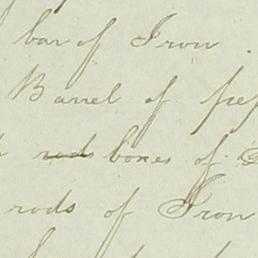 bar of Iron .
Barrel of
rods boxes of
rods of Iron